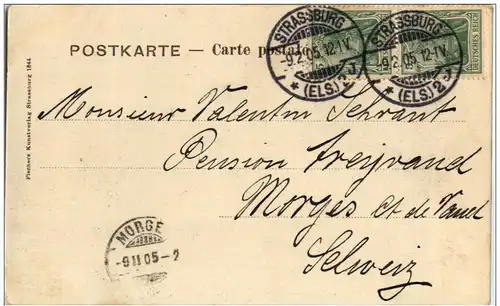 POSTKARTE — Carte postale
STRASSBURG
-9.2.05.12-1V.
* (ELS.) 2 J.
STRASSBURG
-9.2.05.12-1V.
* (ELS.) 2 J.
DEUTSCHES REICH
Monsieur Valentin
Pension
Morges Ct de Vaud
Schweiz
MORGES
-9 II 05-2
Fischers Kunstverlag Strassburg 1844